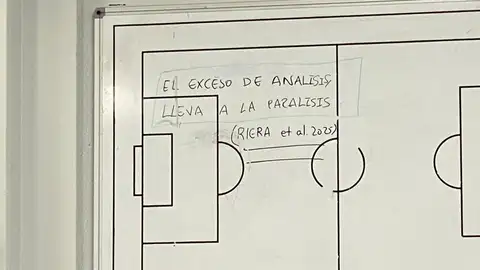 EL EXCESO DE ANALISIS
LLEVA A LA PARALISIS
(RIERA et al. 2025)